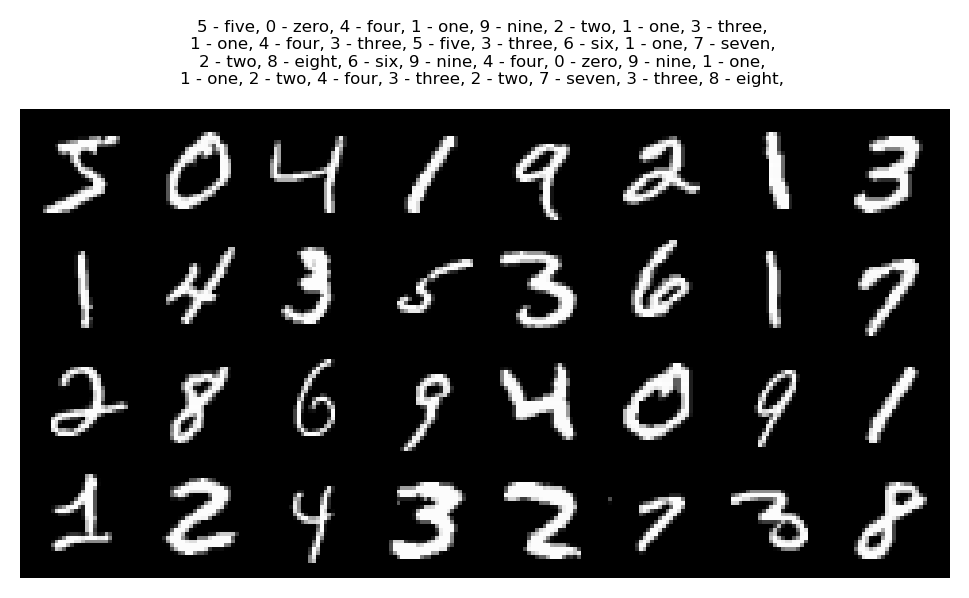 5 - five, 0 - zero, 4 - four, 1 - one, 9 - nine, 2 - two, 1 - one, 3 - three,
1 - one, 4 - four, 3 - three, 5 - five, 3 - three, 6 - six, 1 - one, 7 - seven,
2 - two, 8 - eight, 6 - six, 9 - nine, 4 - four, 0 - zero, 9 - nine, 1 - one,
1 - one, 2 - two, 4 - four, 3 - three, 2 - two, 7 - seven, 3 - three, 8 - eight,
5 0 4 1 9 2 1 3
1 4 3 5 3 6 1 7
2 8 6 9 4 0 9 1
1 2 4 3 2 7 3 8